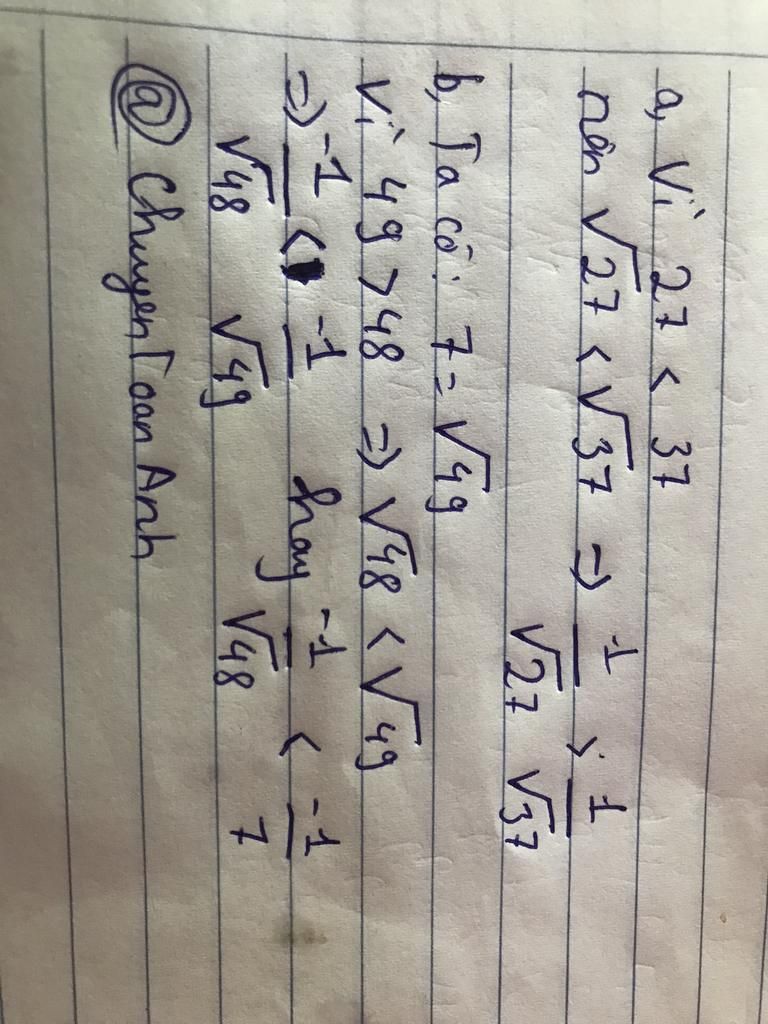 a, Vì 27 < 37
nên √27 < √37 => 1/√27 > 1/√37
b, Ta có: 7 = √49
Vì 49 > 48 => √48 < √49
=> -1/√48 < -1/√49 hay -1/√48 < -1/7
@ ChuyenToanAnh